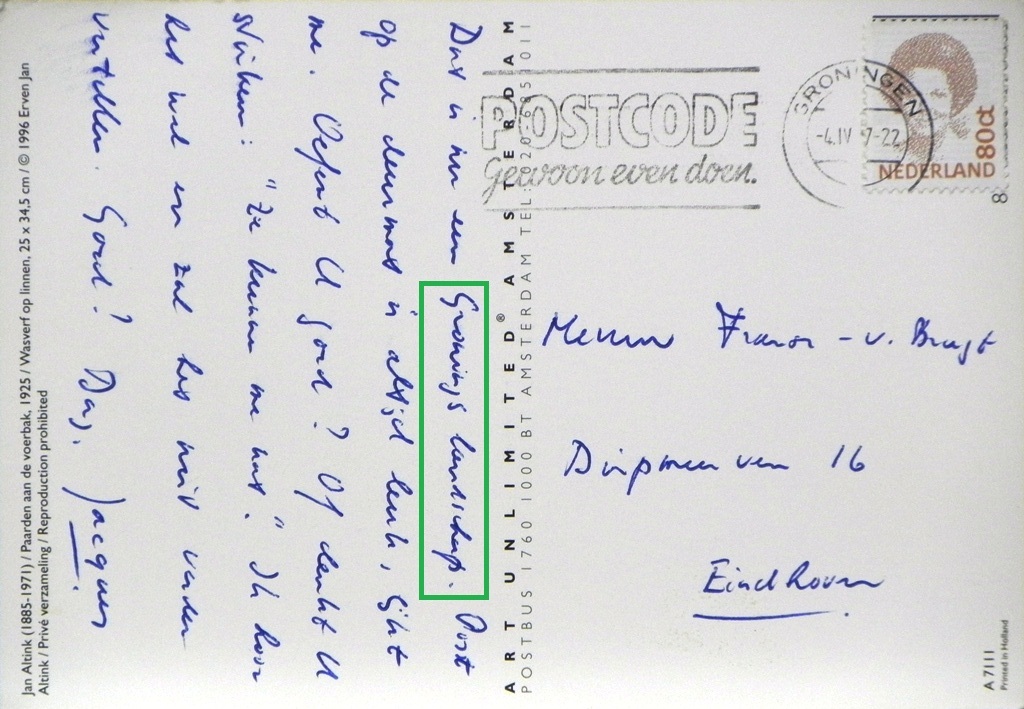 Dat is nu een Gronings landschap. Post
op de deurmat is altijd leuk, lijkt
me. Oefent U goed? Of denkt U
stiekem: "Ze kunnen me wat." Ik hoor
het wel en zal het niet verder
vertellen. Goed? Dag.
Jacques
POSTCODE
Gewoon even doen.
GRONINGEN
-4.IV 7-22
NEDERLAND
80ct
Mevrouw Franse - v. Brugt
Diepmeerven 16
Eindhoven
ART UNLIMITED® AMSTERDAM
POSTBUS 1760 1000 BT AMSTERDAM TEL: 020-685 1011
Jan Altink (1885-1971) / Paarden aan de voerbak, 1925 / Wasverf op linnen, 25 x 34,5 cm / © 1996 Erven Jan
Altink / Privé verzameling / Reproduction prohibited
A 7111
Printed in Holland
8